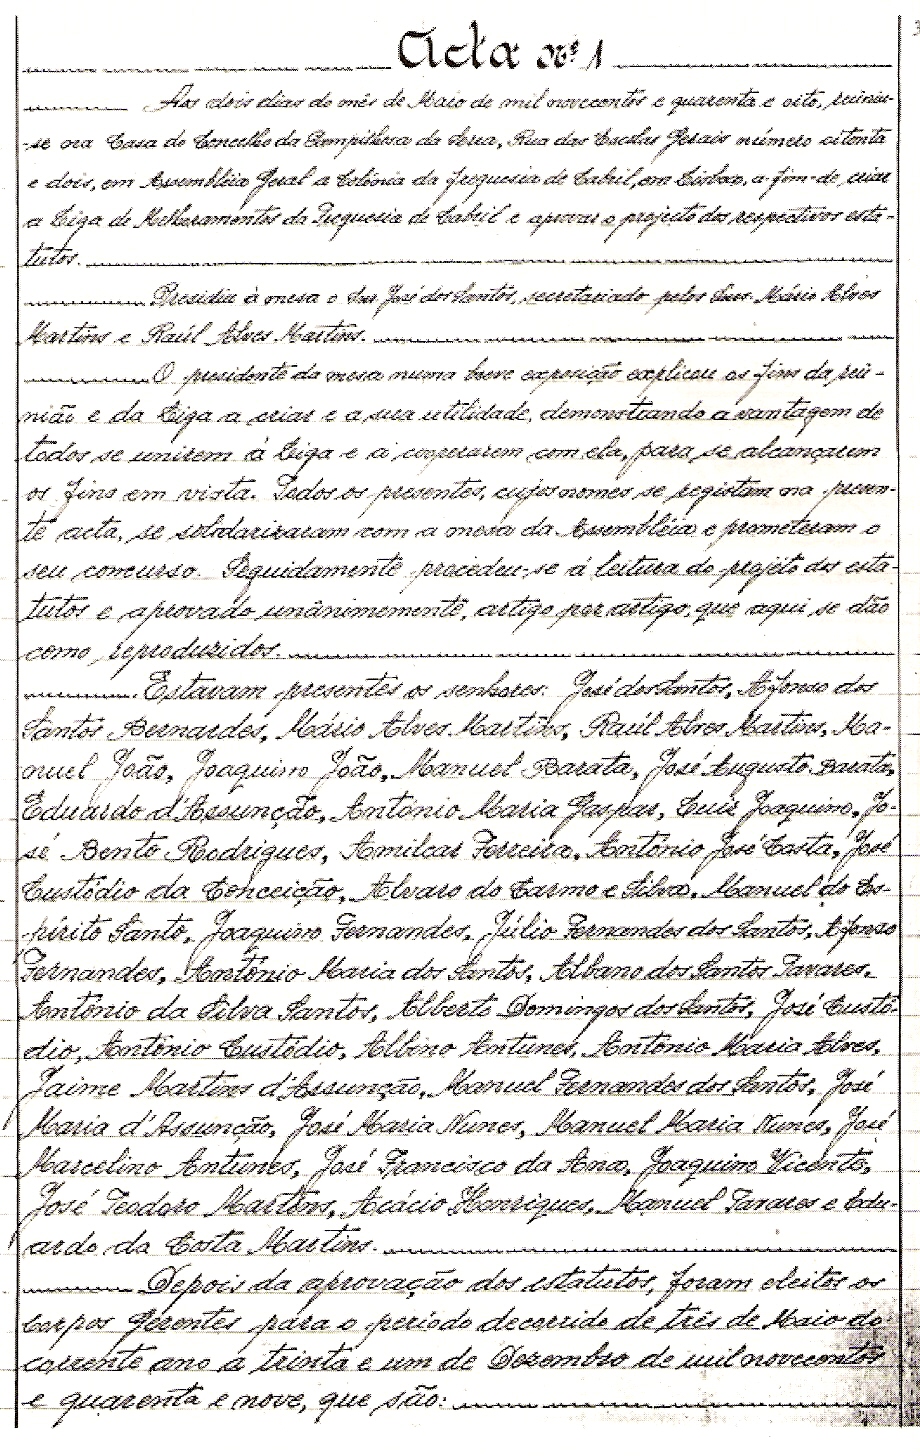 Acta nº 1
3
Aos dois dias do mês de Maio de mil novecentos e quarenta e oito, reuniu-
-se na Casa do Concelho da Pampilhosa da Serra, Rua das Escolas Gerais número oitenta
e dois, em Assembléia Geral a Colónia da freguesia de Cabril, em Lisboa, a-fim-de, criar
a Liga de Melhoramentos da Freguesia de Cabril e aprovar o projecto dos respectivos esta-
tutos.
Presidiu à mesa o Snr José dos Santos, secretariado pelos Snrs. Mário Alves
Martins e Raúl Alves Martins.
O presidente da mesa numa breve exposição explicou os fins da reü-
nião e da Liga a criar e a sua utilidade, demonstrando a vantagem de
todos se unirem à Liga e a cooperarem com ela, para se alcançarem
os fins em vista. Todos os presentes, cujos nomes se registam na presen-
te acta, se solidarizaram com a mesa da Assembléia e prometeram o
seu concurso. Seguidamente procedeu-se á leitura do projéto dos esta-
tutos e aprovado unânimemente, artigo por artigo, que aqui se dão
como reproduzidos.
Estavam presentes os senhores: José dos Santos, Afonso dos
Santos Bernardes, Mário Alves Martins, Raúl Alves Martins, Ma-
nuel João, Joaquim João, Manuel Barata, José Augusto Barata,
Eduardo d'Assunção, António Maria Gaspar, Luiz Joaquim, Jo-
sé Bento Rodrigues, Amilcar Ferreira, António José Costa, José
Custódio da Conceição, Alvaro do Carmo e Silva, Manuel do Es-
pírito Santo, Joaquim Fernandes, Júlio Fernandes dos Santos, Afonso
Fernandes, António Maria dos Santos, Albano dos Santos Tavares,
António da Silva Santos, Alberto Domingos dos Santos, José Custó-
dio, António Custódio, Albino Antunes, António Maria Alves,
Jaime Martins d'Assunção, Manuel Fernandes dos Santos, José
Maria d'Assunção, José Maria Nunes, Manuel Maria Nunes, José
Marcelino Antunes, José Francisco da Ana, Joaquim Vicente,
José Teodoro Martins, Acácio Henriques, Manuel Tavares e Edu-
ardo da Costa Martins.
Depois da aprovação dos estatutos, foram eleitos os
Corpos Gerentes para o período decorrido de três de Maio do
corrente ano a trinta e um de Dezembro de mil novecentos
e quarenta e nove, que são: